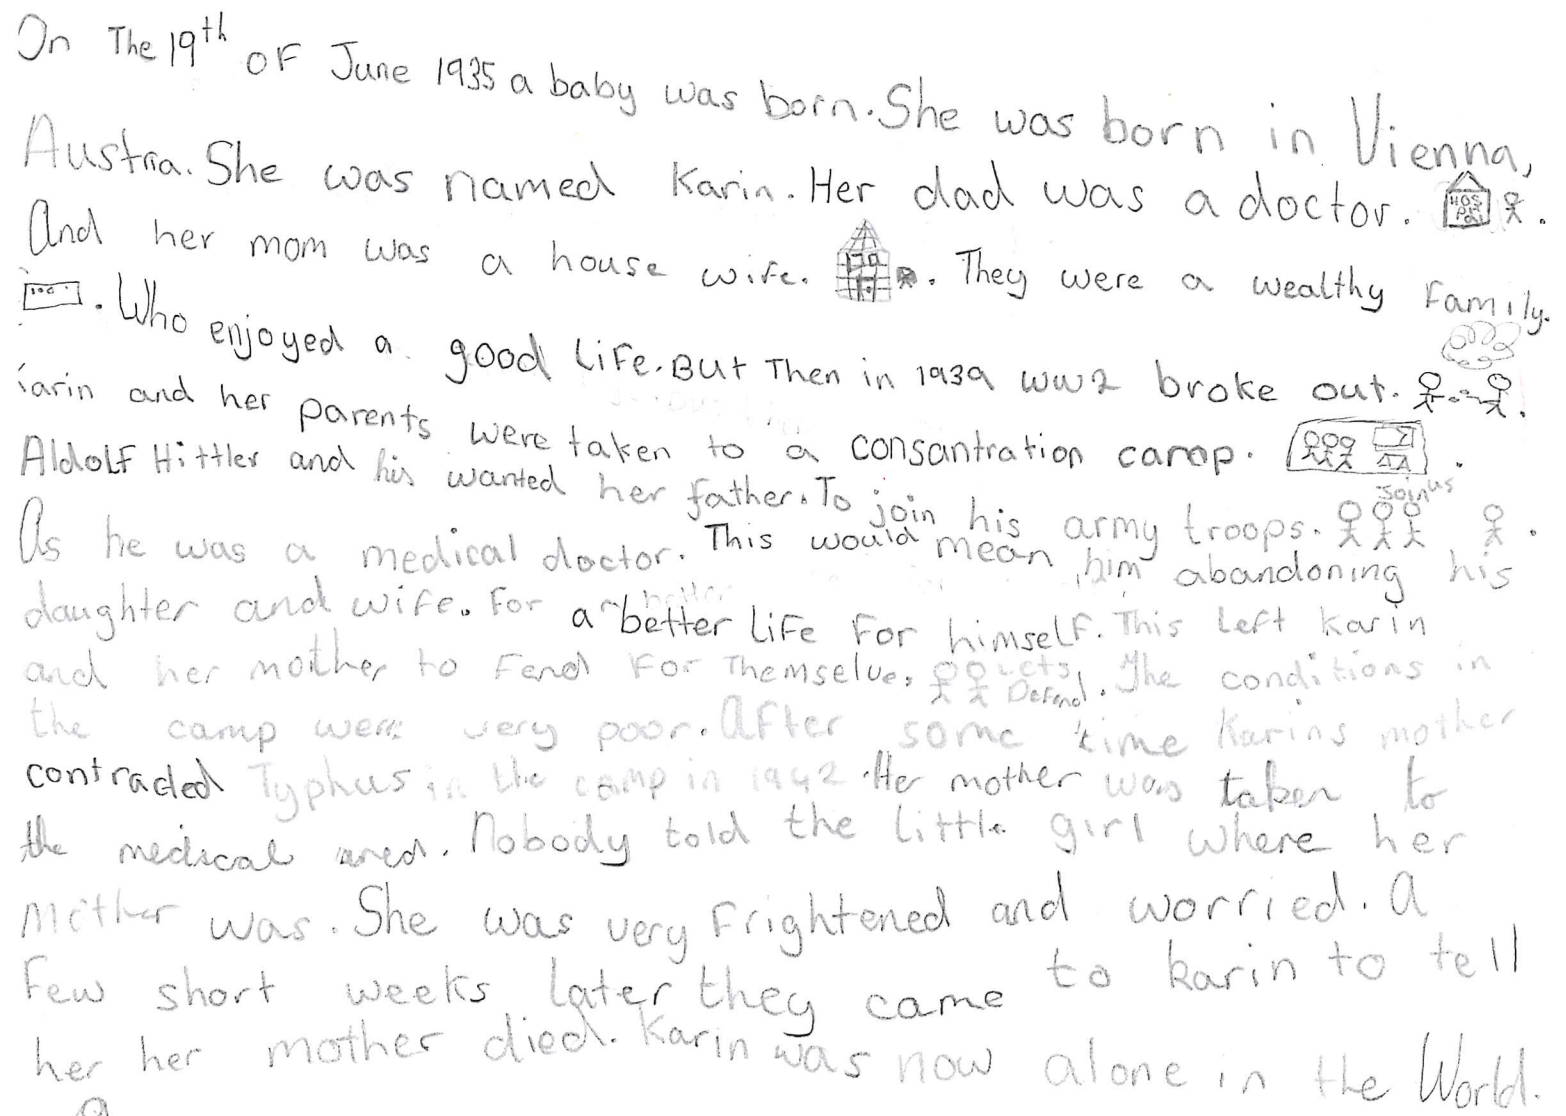 On The 19th OF June 1935 a baby was born. She was born in Vienna,
Austria. She was named Karin. Her dad was a doctor. HOSPITAL.
And her mom was a house wife. . They were a wealthy Family.
100. Who enjoyed a good LiFe. But Then in 1939 WW2 broke out. .
Karin and her parents were taken to a consantration camp. .
AldoLF Hittler and his wanted her father. To join his army troops. Join us .
As he was a medical doctor. This would mean him abandoning his
daughter and wife. For a better LiFe For himself. This Left Karin
and her mother to Fend For Themselve. Lets Defend. The conditions in
the camp were very poor. After some time Karins mother
contracted Typhus in the camp in 1942. Her mother was taken to
the medical area. Nobody told the little girl where her
mother was. She was very Frightened and worried. A
Few short weeks later they came to Karin to tell
her her mother died. Karin was now alone in the World.